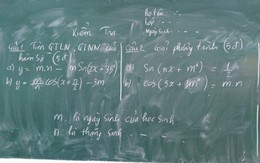 Họ tên: . . .
Lớp . . .
Ngày sinh: . . .
Kiểm Tra
Câu 1 Tìm GTLN, GTNN của hàm số (5đ)
a) y = m.n - m Sin(2x + 35
b) y = m/n cos(x + π/2) - 3m
Câu 2 Giải phương trình (5đ)
a) Sin(nx + m°) = 1/2
b) cos(3x + m°) = m.n
m là ngày sinh của học sinh
n là tháng sinh